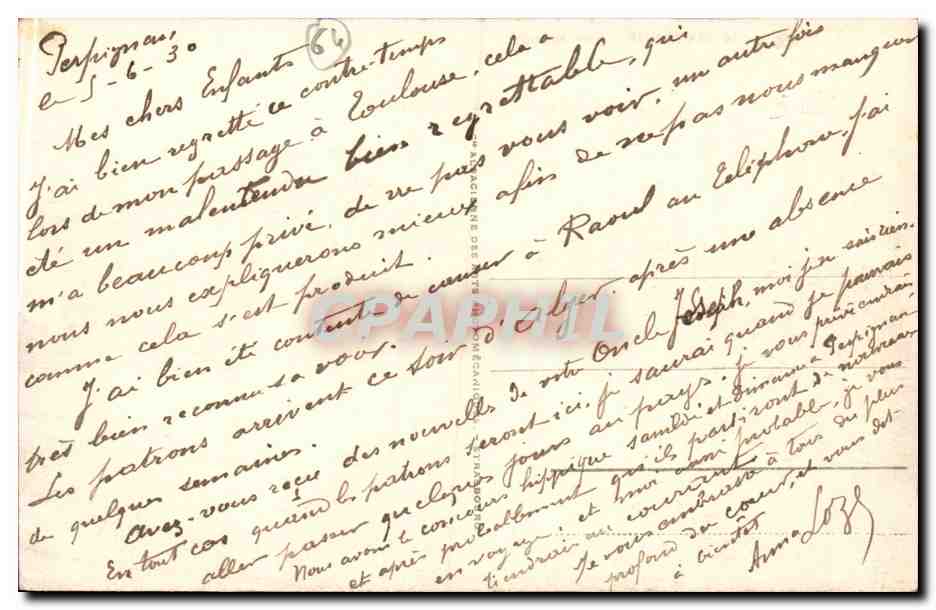 Perpignan,
le 5-6-30
64
Mes chers Enfants
J'ai bien regretté ce contre-temps
lors de mon passage à Toulouse, cela a
été un malentendu bien regrettable, qui
m'a beaucoup privé, de ne pas vous voir, un autre fois
nous nous expliquerons mieux afin de ne pas nous manquer
comme cela s'est produit.
J'ai bien été contente de causer à Raoul au téléphone, j'ai
très bien reconnu sa voix.
Les patrons arrivent ce soir d'Alger après une absence
de quelques semaines.
Avez-vous reçu des nouvelles de votre Oncle Joseph, moi je ne sais rien.
En tout cas quand les patrons seront ici, je saurai quand je pourrais
aller passer quelques jours au pays, je vous préviendrai
Nous avons le concours hippique samedi et dimanche à Perpignan
et après probablement qu'ils partiront de nouveau
en voyage et moi aussi probable, je vous
tiendrai au courant
Je vous embrasse à tous de plus
profond du cœur, et vous dit
à bientôt
Anna Loze
ALSACIENNE DES ARTS PHOTOMÉCANIQUES STRASBOURG
CPAPHIL